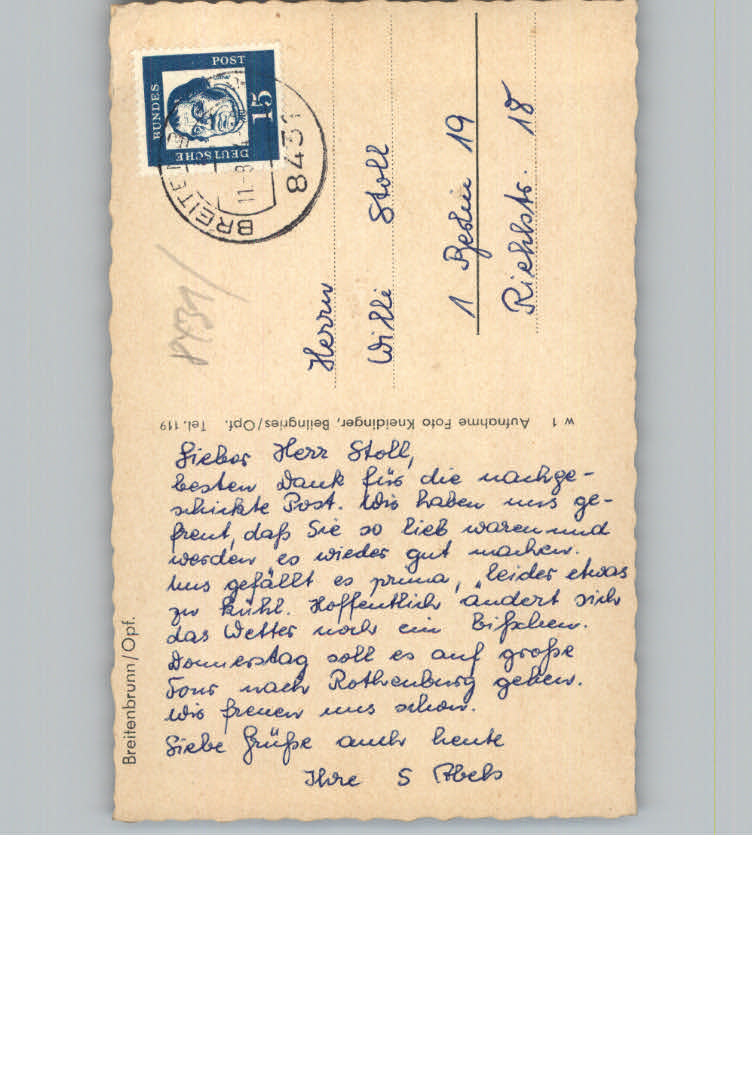 Lieber Herr Stoll,
besten Dank für die nachge-
schickte Post. Wir haben uns ge-
freut, daß Sie so lieb waren und
werden es wieder gut machen.
Uns gefällt es prima, leider etwas
zu kühl. Hoffentlich ändert sich
das Wetter noch ein Bißchen.
Donnerstag soll es auf große
Tour nach Rothenburg gehen.
Wir freuen uns schon.
Liebe Grüße auch heute
Ihre 5
Herrn
Willi Stoll
1 Berlin 19
Riehlstr. 18
DEUTSCHE
BUNDES
POST
15
8431
8431/
W 1 Aufnahme Foto Kneidinger, Beilngries/Opf. Tel. 119
Breitenbrunn/Opf.